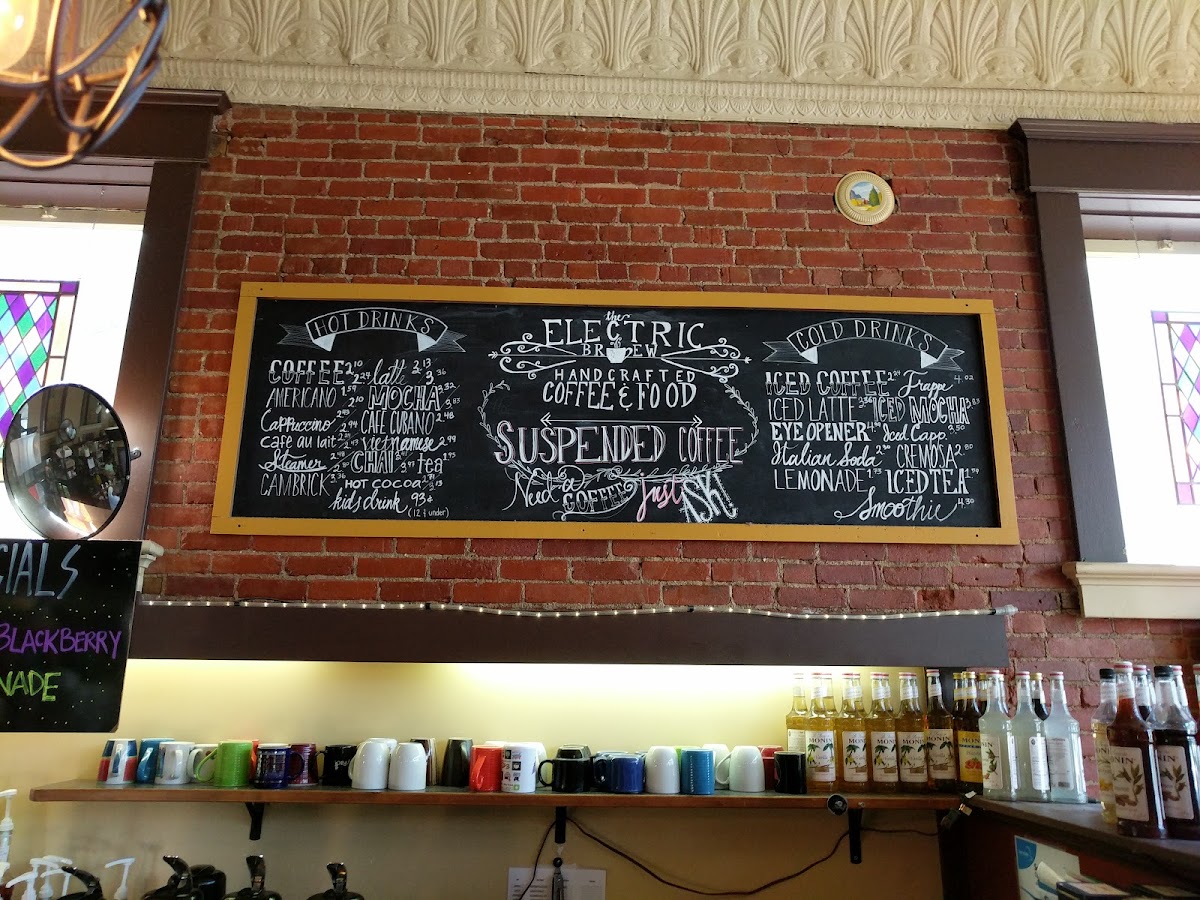 HOT DRINKS
COFFEE 2.10 2.24
AMERICANO 1.59 2.10
Cappuccino 2.43 2.94
cafe au lait
Steamer 2.48
CAMBRICK 3.36
latte 2.13 3.36
MOCHA 3.32 3.83
CAFE CUBANO 2.48
vietnamese 2.99
CHAI
tea 1.95
HOT COCOA
kids drink 93¢
(12 & under)
the
ELECTRIC
BREW
HANDCRAFTED
COFFEE & FOOD
SUSPENDED COFFEE
Need a
COFFEE
just
ASK
COLD DRINKS
ICED COFFEE
ICED LATTE
EYE OPENER
Italian Soda
LEMONADE
Frappe 4.02
ICED MOCHA 3.83
Iced Capp. 3.50
CREMOSA 2.80
ICED TEA
Smoothie 4.30
CIALS
BLACKBERRY
NADE
MONIN
MONIN
MONIN
MONIN
MONIN
MONIN